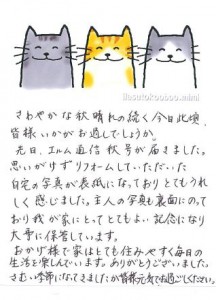 iinatokoubou.mimi
さわやかな秋晴れの続く今日此頃、
皆様いかがお過しでしょうか。
先日、エルム通信秋号が届きました。
思いがけずリフォームしていただいた
自宅の写真が表紙になっておりとてもうれ
しく感じました。主人の写真も裏面にのって
おり我が家にとってとてもよい記念になり
大事に保管しています。
おかげ様で家はとても住みやすく毎日の
生活を楽しんでいます。ありがとうございました。
さむい季節になってきましたが皆様元気でお過ごしください。